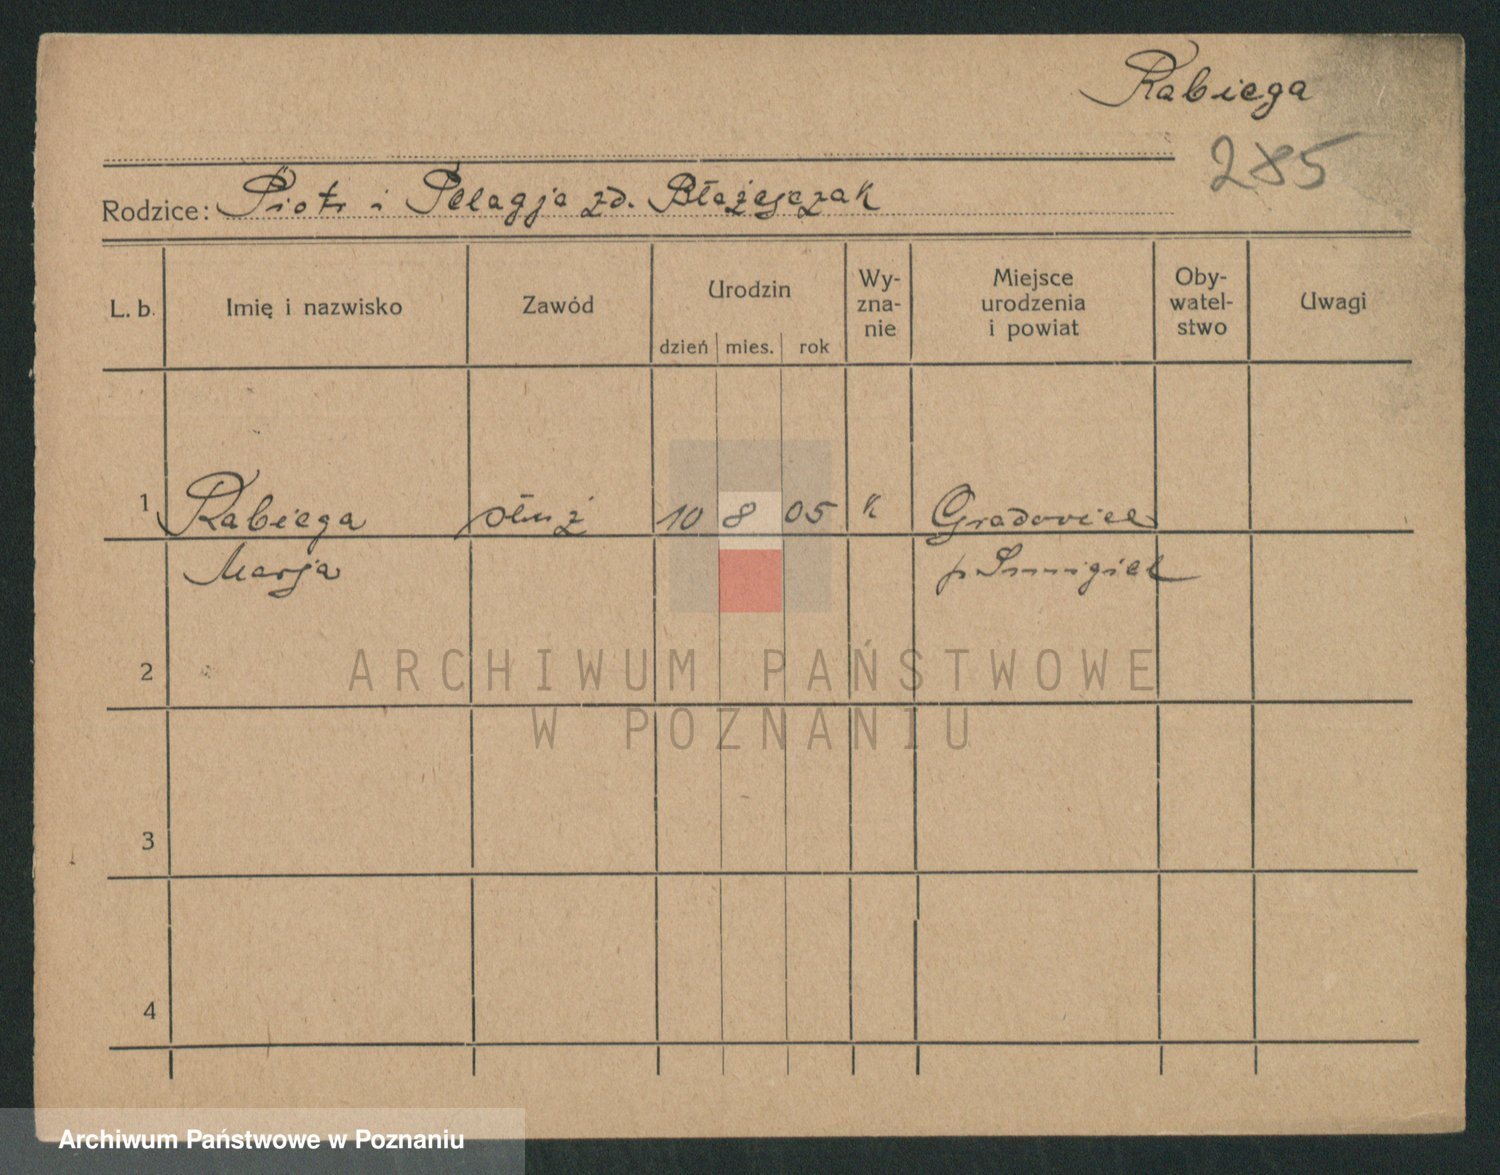 Rabiega
285
Rodzice: Piotr i Pelagja zd. Błażejczak
L. b. Imię i nazwisko Zawód Urodzin dzień mies. rok Wy-zna-nie Miejsce urodzenia i powiat Oby-watel-stwo Uwagi
1 Rabiega służ 10 8 05 k Gradowice
Marja p. Śmigiel
2
ARCHIWUM PAŃSTWOWE
W POZNANIU
3
4
Archiwum Państwowe w Poznaniu